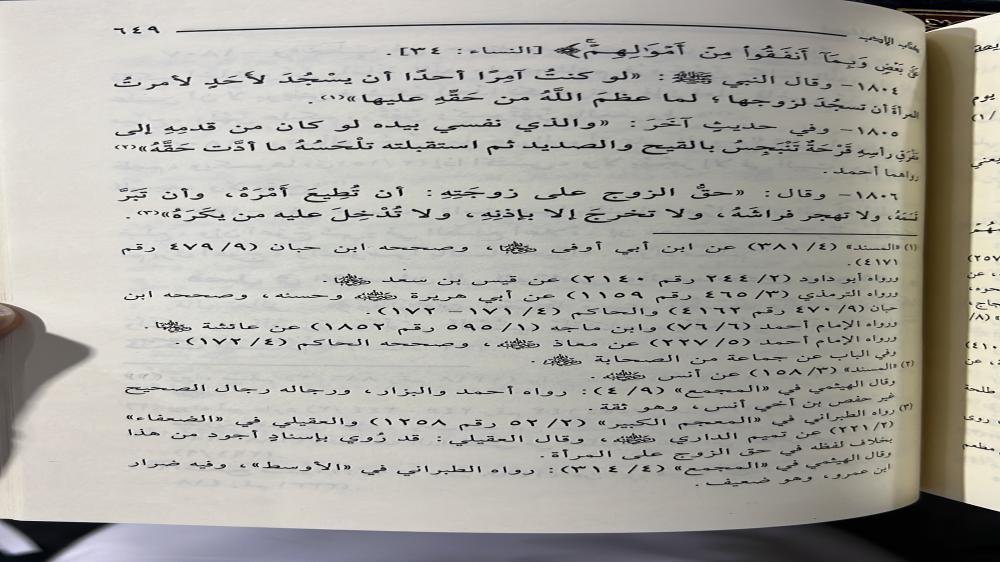 كتاب الأدب ٦٤٩
عَلَىٰ بَعْضٍ وَبِمَا أَنفَقُوا مِنْ أَمْوَالِهِمْ﴾ [النساء: ٣٤].
١٨٠٤- وقال النبي ﷺ: «لو كنتُ آمِرًا أحدًا أن يسْجُدَ لأحَدٍ لأمرتُ
المرأةَ أن تسجُدَ لزوجها؛ لما عظمَ اللَّهُ من حَقِّهِ عليها»(١).
١٨٠٥- وفي حديثٍ آخَرَ: «والذي نفسي بيده لو كان من قدمِهِ إلى
مَفْرَقِ رأسِهِ قَرْحَةٌ تَنْبَجِسُ بالقيح والصديد ثم استقبلته تلْحَسُهُ ما أدَّت حَقَّهُ»(٢)
رواهما أحمد.
١٨٠٦- وقال: «حقُّ الزوج على زوجَتِهِ: أن تُطِيعَ أَمْرَهُ، وأن تَبَرَّ
قَسَمَهُ، ولا تهجر فراشَهُ، ولا تخرجَ إلا بإذنِهِ، ولا تُدْخِلَ عليه من يكرَهُ»(٣).
(١) «المسند» (٣٨١/٤) عن ابن أبي أوفى ﷺ، وصححه ابن حبان (٤٧٩/٩ رقم
٤١٧١).
ورواه أبو داود (٢٤٤/٢ رقم ٢١٤٠) عن قيس بن سعد.
ورواه الترمذي (٤٦٥/٣ رقم ١١٥٩) عن أبي هريرة وحسنه، وصححه ابن
حبان (٤٧٠/٩ رقم ٤١٦٢) والحاكم (٤/ ١٧١- ١٧٢).
ورواه الإمام أحمد (٧٦/٦) وابن ماجه (٥٩٥/١ رقم ١٨٥٢) عن عائشة.
ورواه الإمام أحمد (٢٢٧/٥) عن معاذ، وصححه الحاكم (١٧٢/٤).
وفي الباب عن جماعة من الصحابة.
(٢) «المسند» (١٥٨/٣) عن أنس.
وقال الهيثمي في «المجمع» (٤/٩): رواه أحمد والبزار، ورجاله رجال الصحيح
غير حفص بن أخي أنس، وهو ثقة.
(٣) رواه الطبراني في «المعجم الكبير» (٥٢/٢ رقم ١٢٥٨) والعقيلي في «الضعفاء»
(٢٢١/٢) عن تميم الداري، وقال العقيلي: قد رُوي بإسنادٍ أجود من هذا
بخلاف لفظه في حق الزوج على المرأة.
وقال الهيثمي في «المجمع» (٣١٤/٤): رواه الطبراني في «الأوسط»، وفيه ضرار
ابن عمرو، وهو ضعيف.